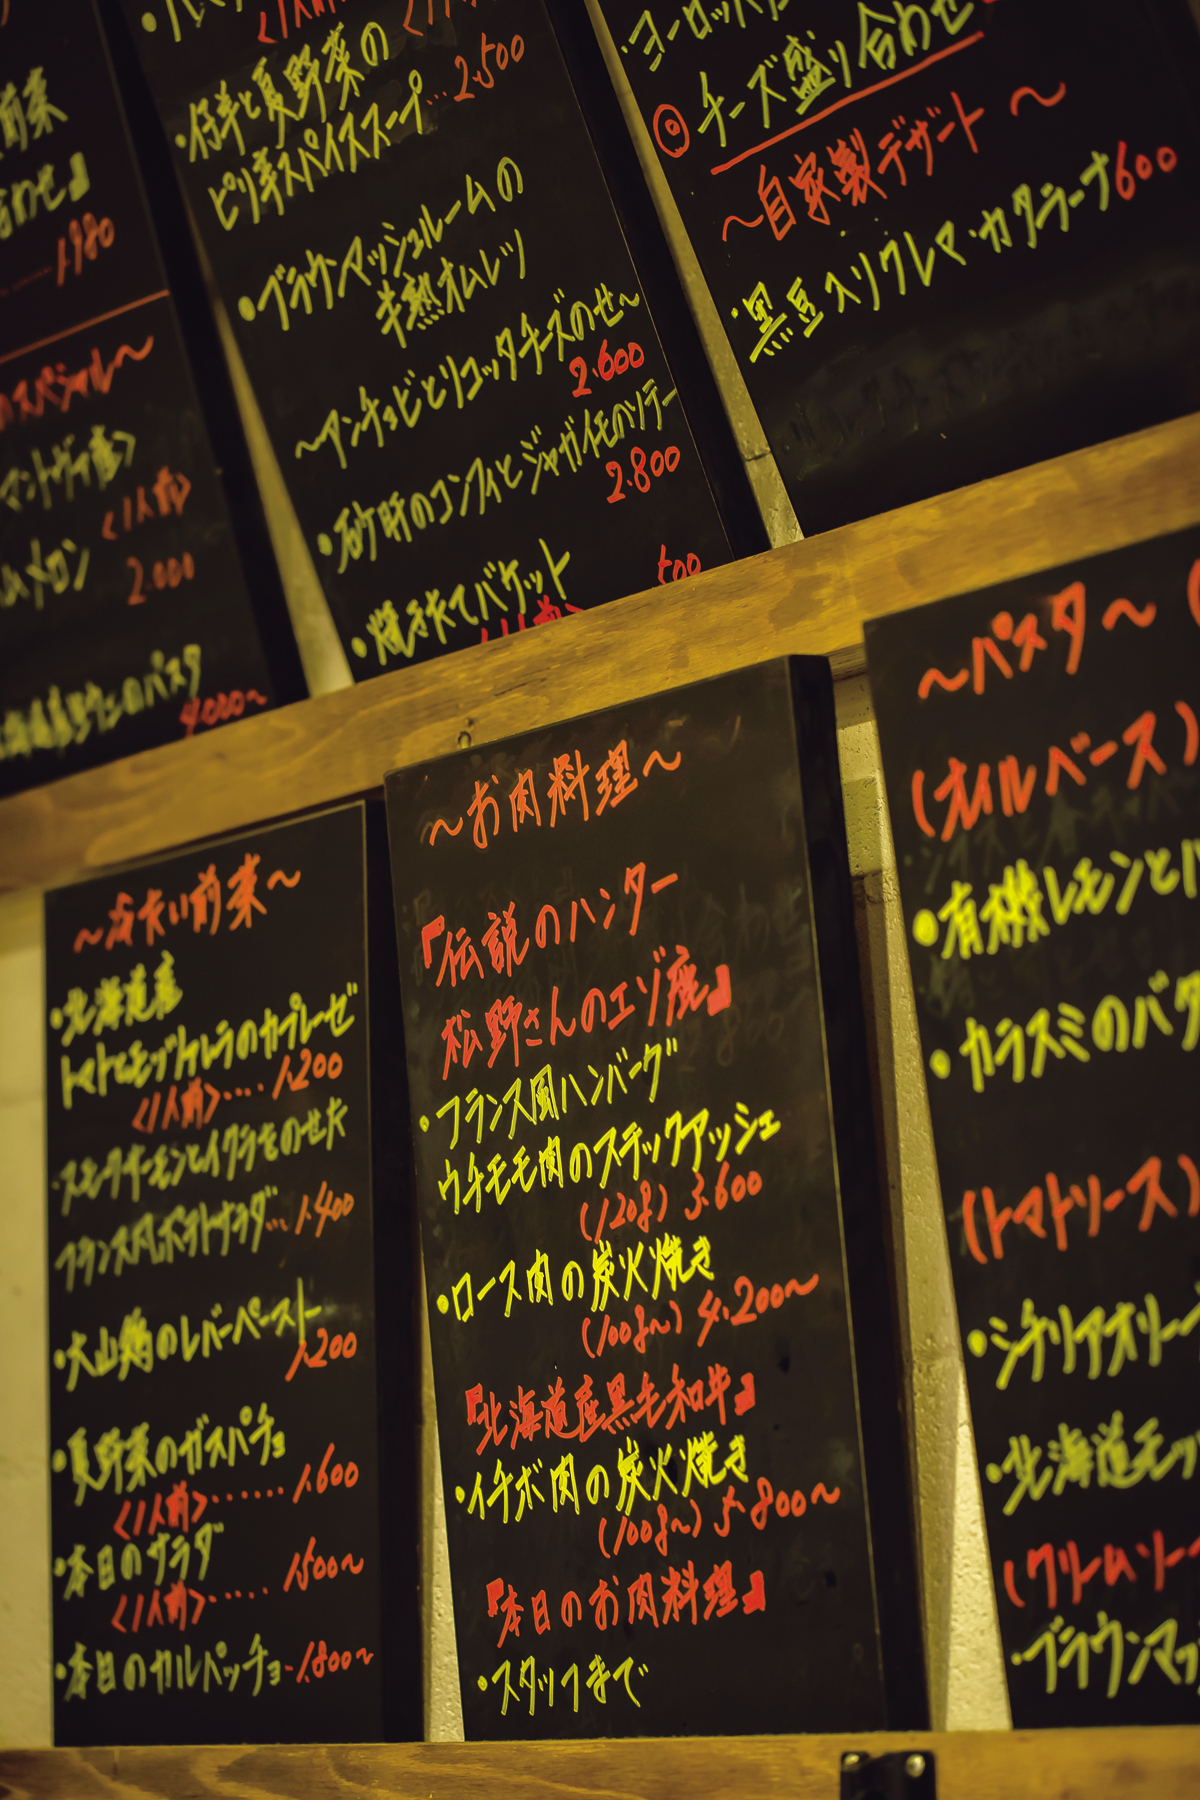 前菜
1.980
スペシャル〜
マントヴァ産〉
〈1人前〉
メロン
2.000
のパスタ
4.000〜
・仔羊と夏野菜の
ピリ辛スパイススープ…2.500
・ブラウンマッシュルームの
半熟オムレツ
〜アンチョビとリコッタチーズのせ〜
2.600
・砂肝のコンフィとジャガイモのソテー
2.800
・焼きたてバケット
500
・ヨーロッパ
◎チーズ盛り合わせ
〜自家製デザート〜
・黒豆入りクレマ・カタラーナ600
〜冷たい前菜〜
・北海道産
トマトとモッツァレラのカプレーゼ
〈1人前〉‥‥1.200
・スモークサーモンとイクラをのせた
フランス風ポテトサラダ…1.400
・大山鶏のレバーペースト
1.200
・夏野菜のガスパチョ
〈1人前〉……1.600
・本日のサラダ
〈1人前〉‥‥1.500〜
・本日のカルパッチョ‥1.800〜
〜お肉料理〜
『伝説のハンター
松野さんのエゾ鹿』
・フランス風ハンバーグ
ウチモモ肉のステックアッシェ
(120g) 3.600
・ロース肉の炭火焼き
(100g〜) 4.200〜
『北海道産黒毛和牛』
・イチボ肉の炭火焼き
(100g〜) 5.800〜
『本日のお肉料理』
・スタッフまで
〜パスタ〜
(オイルベース)
・有機レモンと
・カラスミのバ
(トマトソース)
・シチリアオリー
・北海道モッ
(クリームソー
・ブラウンマッ